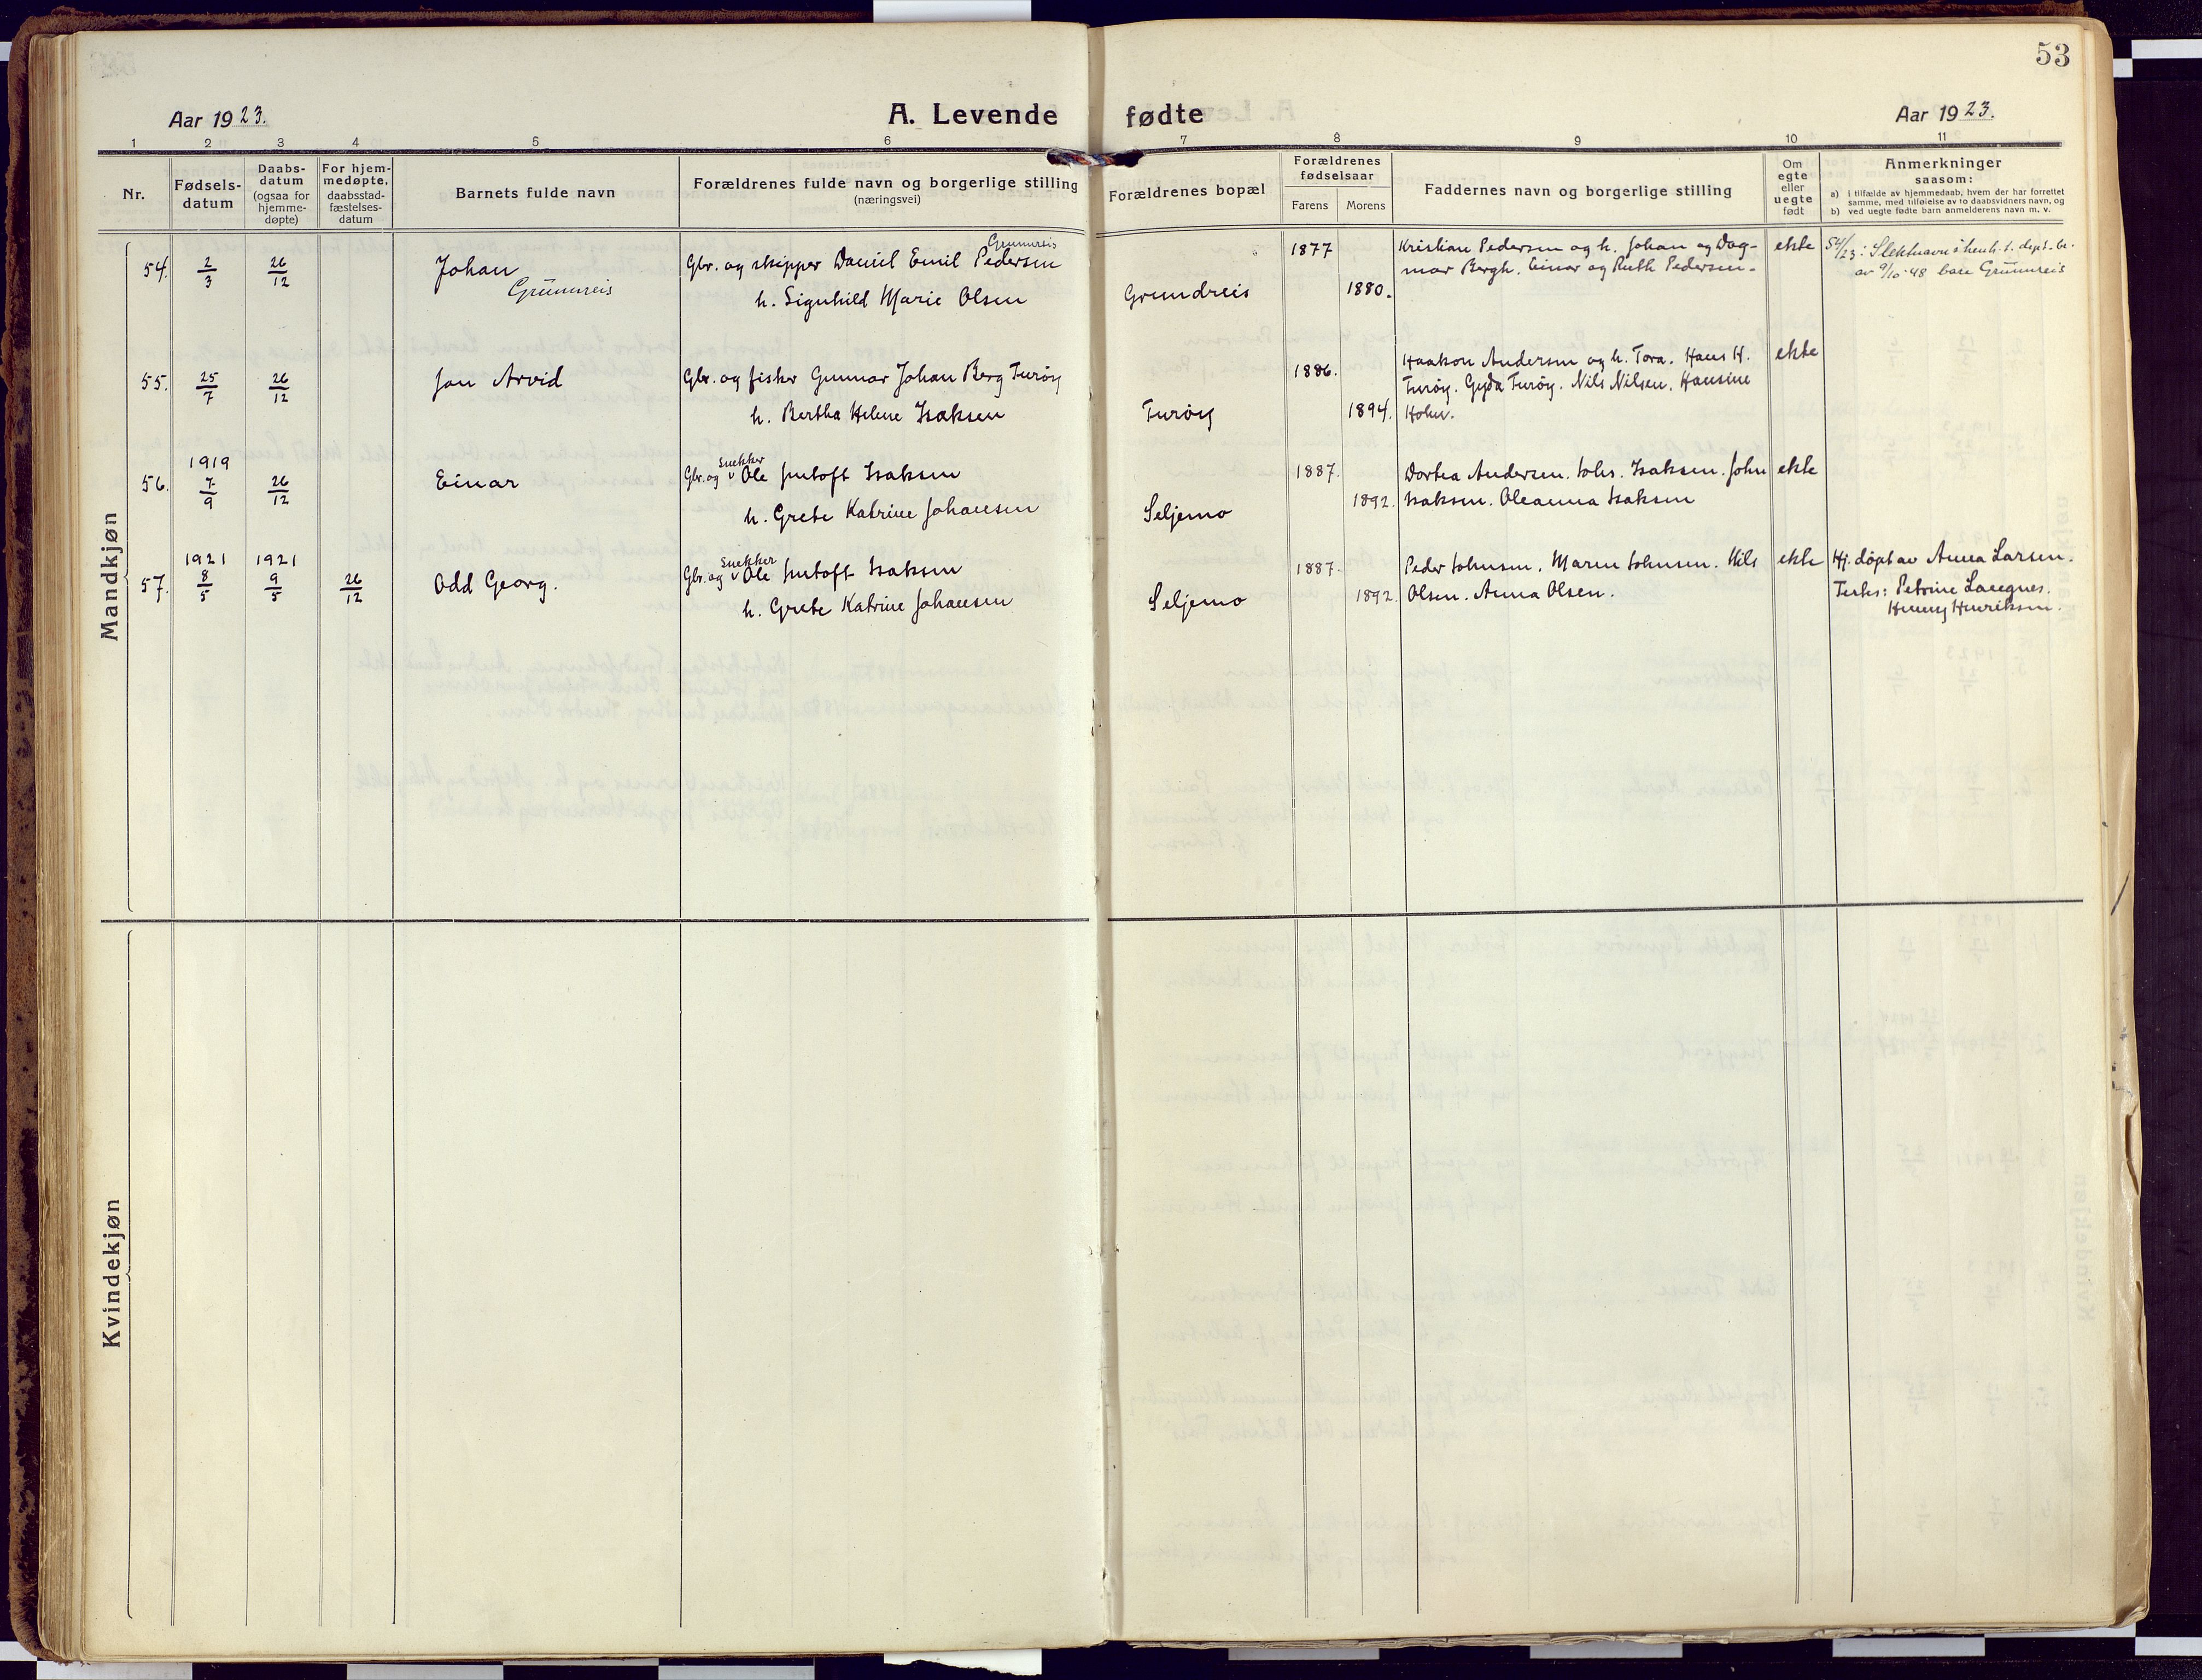 53
Aar 1923.
A. Levende fødte
Aar 1923.
1 2 3 4 5 6 7 8 9 10 11
Nr.
Fødsels-
datum
Daabs-
datum
(ogsaa for
hjemme-
døpte)
For hjem-
medøpte,
daabsstad-
fæstelses-
datum
Barnets fulde navn
Forældrenes fulde navn og borgerlige stilling
(næringsvei)
Forældrenes bopæl
Forældrenes
fødselsaar
Farens Morens
Faddernes navn og borgerlige stilling
Om
egte
eller
uegte
født
Anmerkninger
saasom:
a) i tilfælde av hjemmedaab, hvem der har forrettet
samme, med tilføielse av to daabsvidners navn, og
b) ved uegte fødte barn anmelderens navn m. v.
Mandkjøn
54. 2/3 26/12 Johan
Grunnreis
Grunnreis
Gbr. og skipper Daniel Emil Pedersen
h. Signhild Marie Olsen
Grundreis
1877
1880.
Kristian Pedersen og h. Johan og Dag-
mar Bergh. Einar og Ruth Pedersen.
ekte
54/23: Slektnavn i henh. t. dept. br.
av 9/10-48 bare Grunnreis
55. 25/7 26/12 Jan Arvid
Gbr. og fisker Gunnar Johan Berg Turøy
h. Bertha Helene Isaksen
Turøy
1886.
1894.
Haakon Andersen og h. Tora. Hans H.
Turøy. Gyda Turøy. Nils Nilsen. Hansine
Holm.
ekte
1919
56. 7/9 26/12 Einar
snekker
Gbr. og v Ole Jentoft Isaksen
h. Grete Katrine Johansen
Seljemo
1887.
1892.
Dortea Andersen. Johs. Isaksen. John
Isaksen. Oleanna Isaksen
ekte
1921 1921
57. 8/5 9/5 26/12 Odd Georg.
Snekker
Gbr. og v Ole Jentoft Isaksen
h. Grete Katrine Johansen
Seljemo
1887.
1892.
Peder Johnsen. Maren Johnsen. Nils
Olsen. Anna Olsen.
ekte
Hj. døpt av Anna Larsen.
Testes: Petrine
Henny Henriksen.
Kvindekjøn